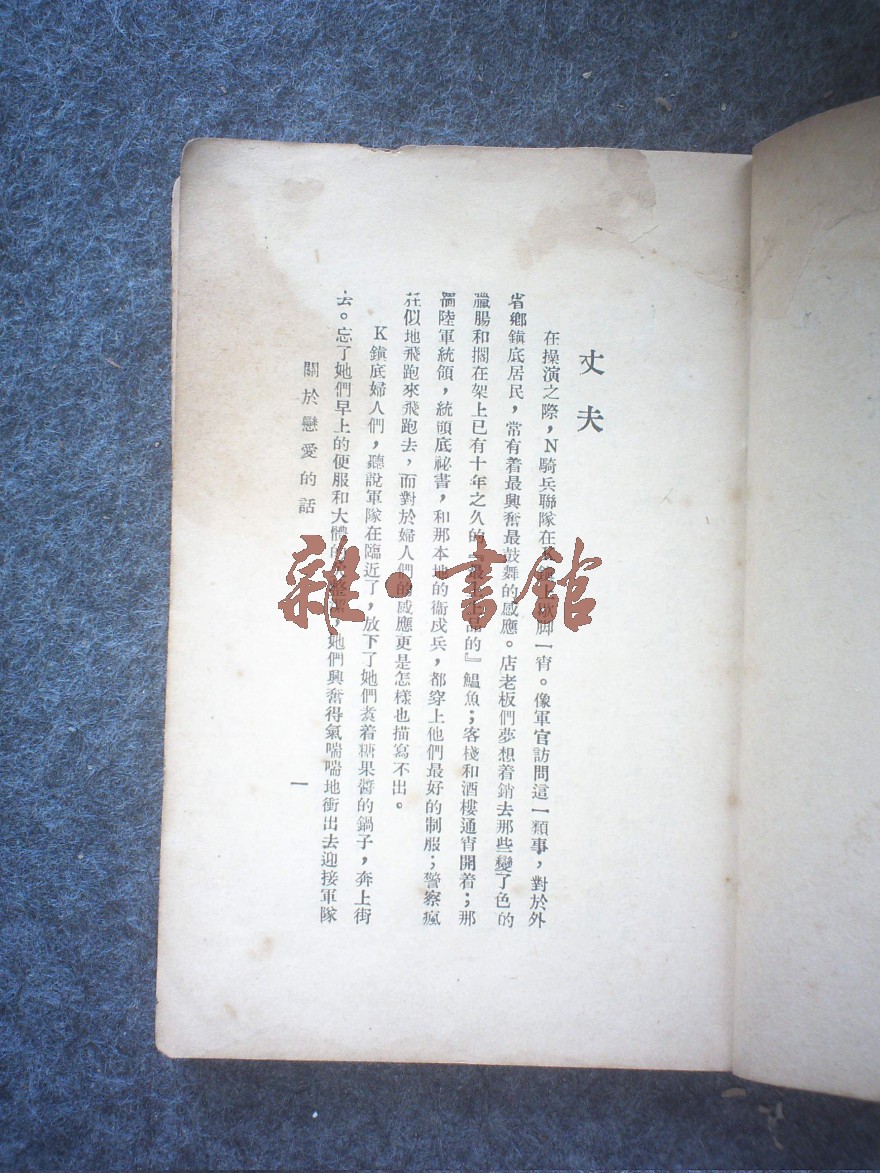 丈夫
在操演之際，N騎兵聯隊在 脚一宵。像軍官訪問這一類事，對於外
省鄉鎮底居民，常有着最興奮最鼓舞的感應。店老板們夢想着銷去那些變了色的
臘腸和擱在架上已有十年之久的『最上品的』鰮魚；客棧和酒樓通宵開着；那
陸軍統領，統領底祕書，和那本地的衞戍兵，都穿上他們最好的制服；警察瘋
狂似地飛跑來飛跑去，而對於婦人們的感應更是怎樣也描寫不出。
K鎮底婦人們，聽說軍隊在臨近了，放下了她們煑着糖果醬的鍋子，奔上街
去。忘了她們早上的便服和大體的 她們興奮得氣喘喘地衝出去迎接軍隊
關於戀愛的話
一
雜·書館